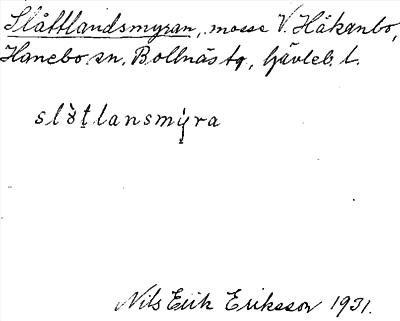 Slåttlandsmyran, mosse V. Håkanbo,
Hanebo sn, Bollnäs tg, Gävleb. l.
slò̀t̠lansmỳra
Nils Erik Eriksson 1931.